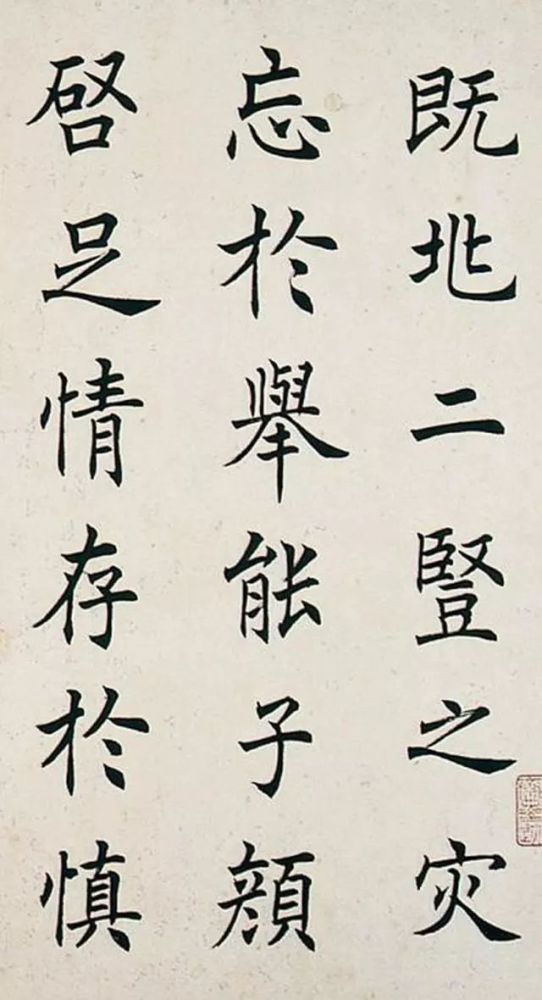 既兆二豎之灾
忘於舉能子顔
啓足情存於慎